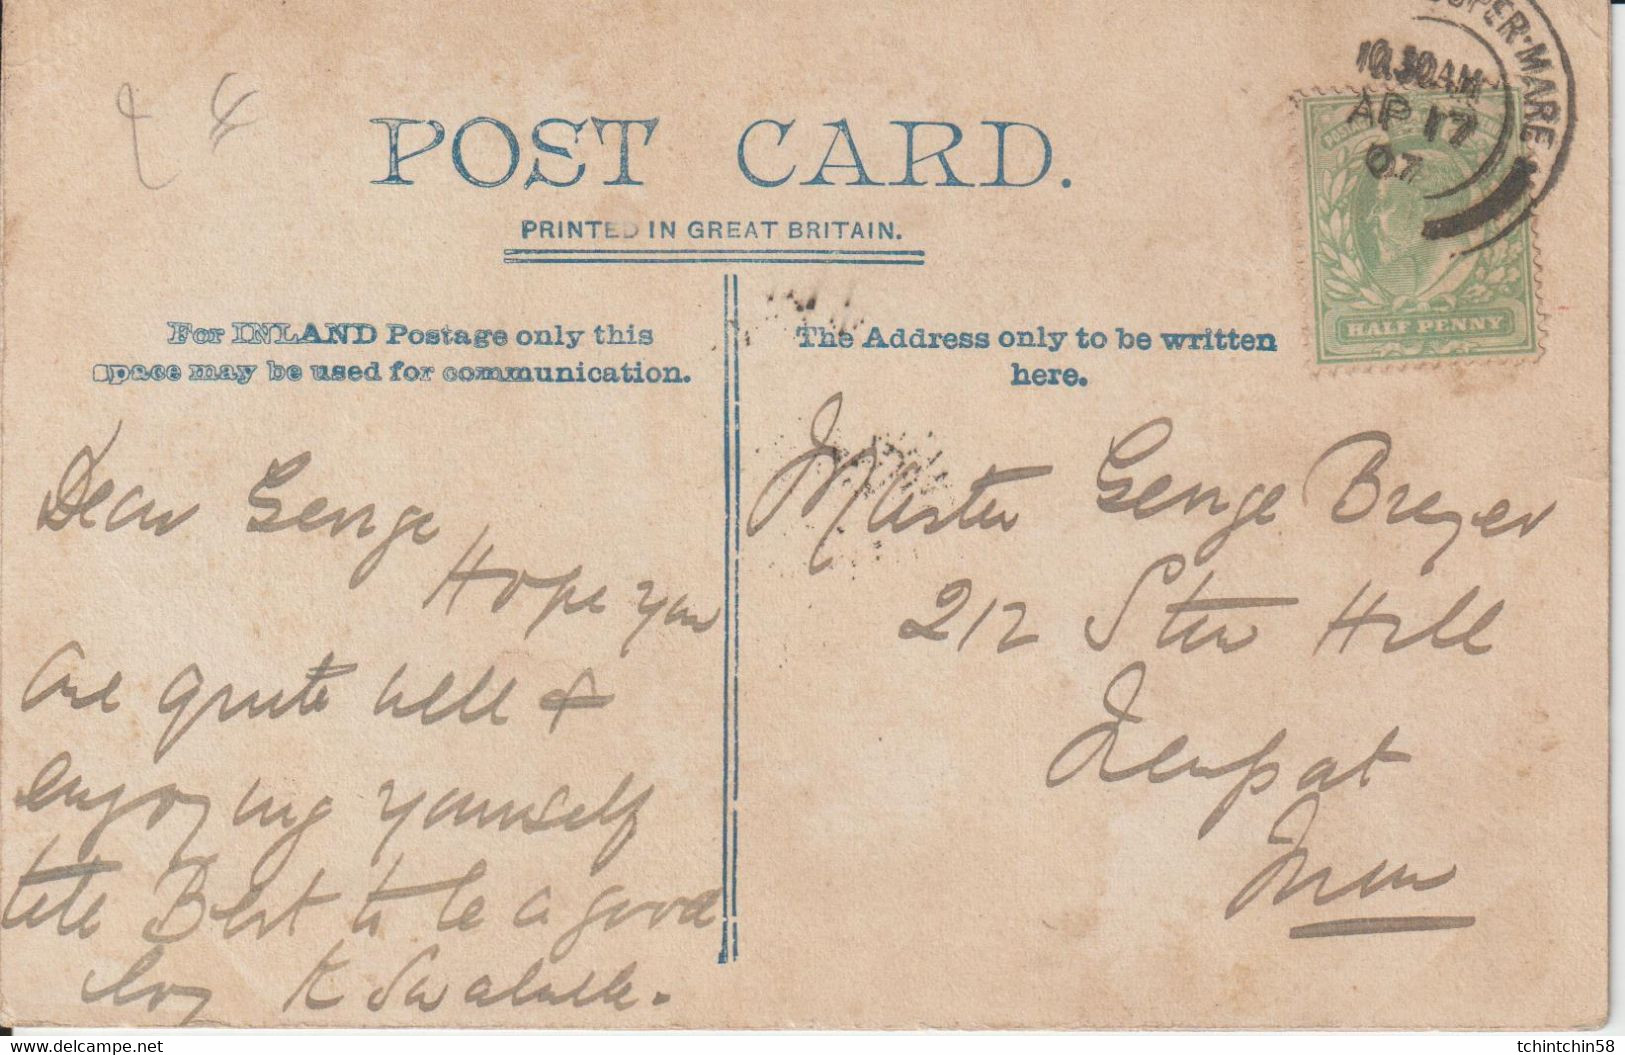 POST CARD.
PRINTED IN GREAT BRITAIN.
SUPER-MARE
10.30AM
AP 17
07
HALF PENNY
For INLAND Postage only this
space may be used for communication.
The Address only to be written
here.
Dear George
Hope you
are quite well &
enjoying yourself
Bert to be a good
boy K
Master George Breyer
212 Stow Hill
Newport
Mon
www.delcampe.net
tchintchin58